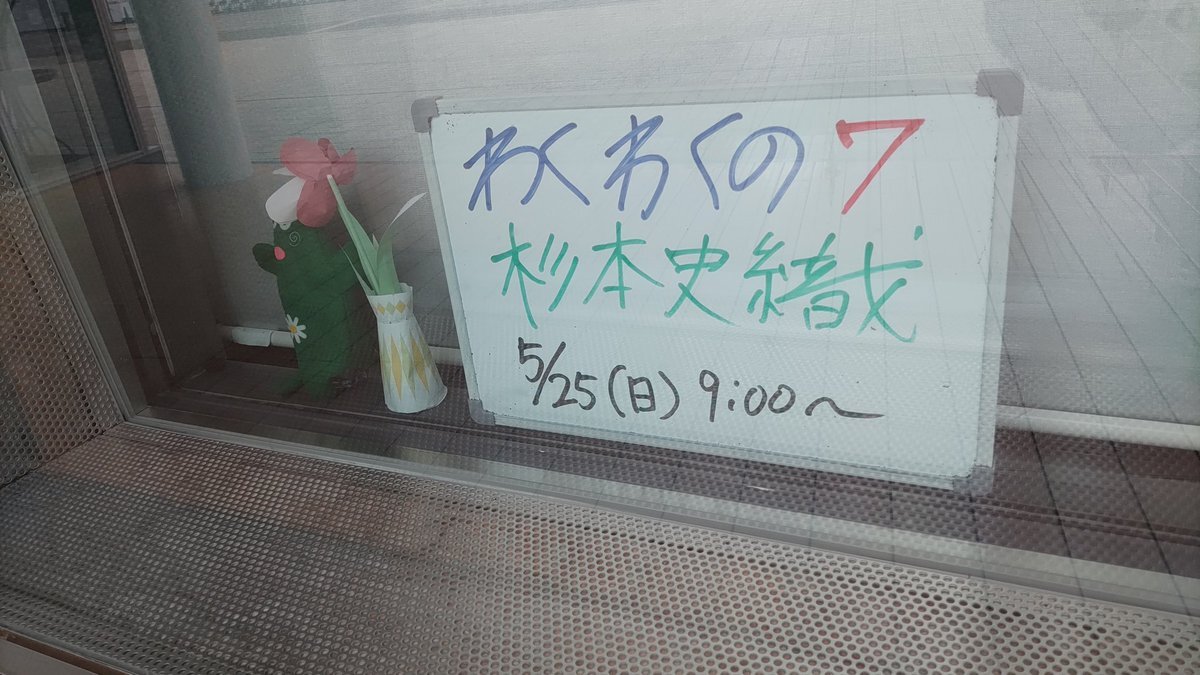 わくわくのワ
杉本史織
5/25(日) 9:00~